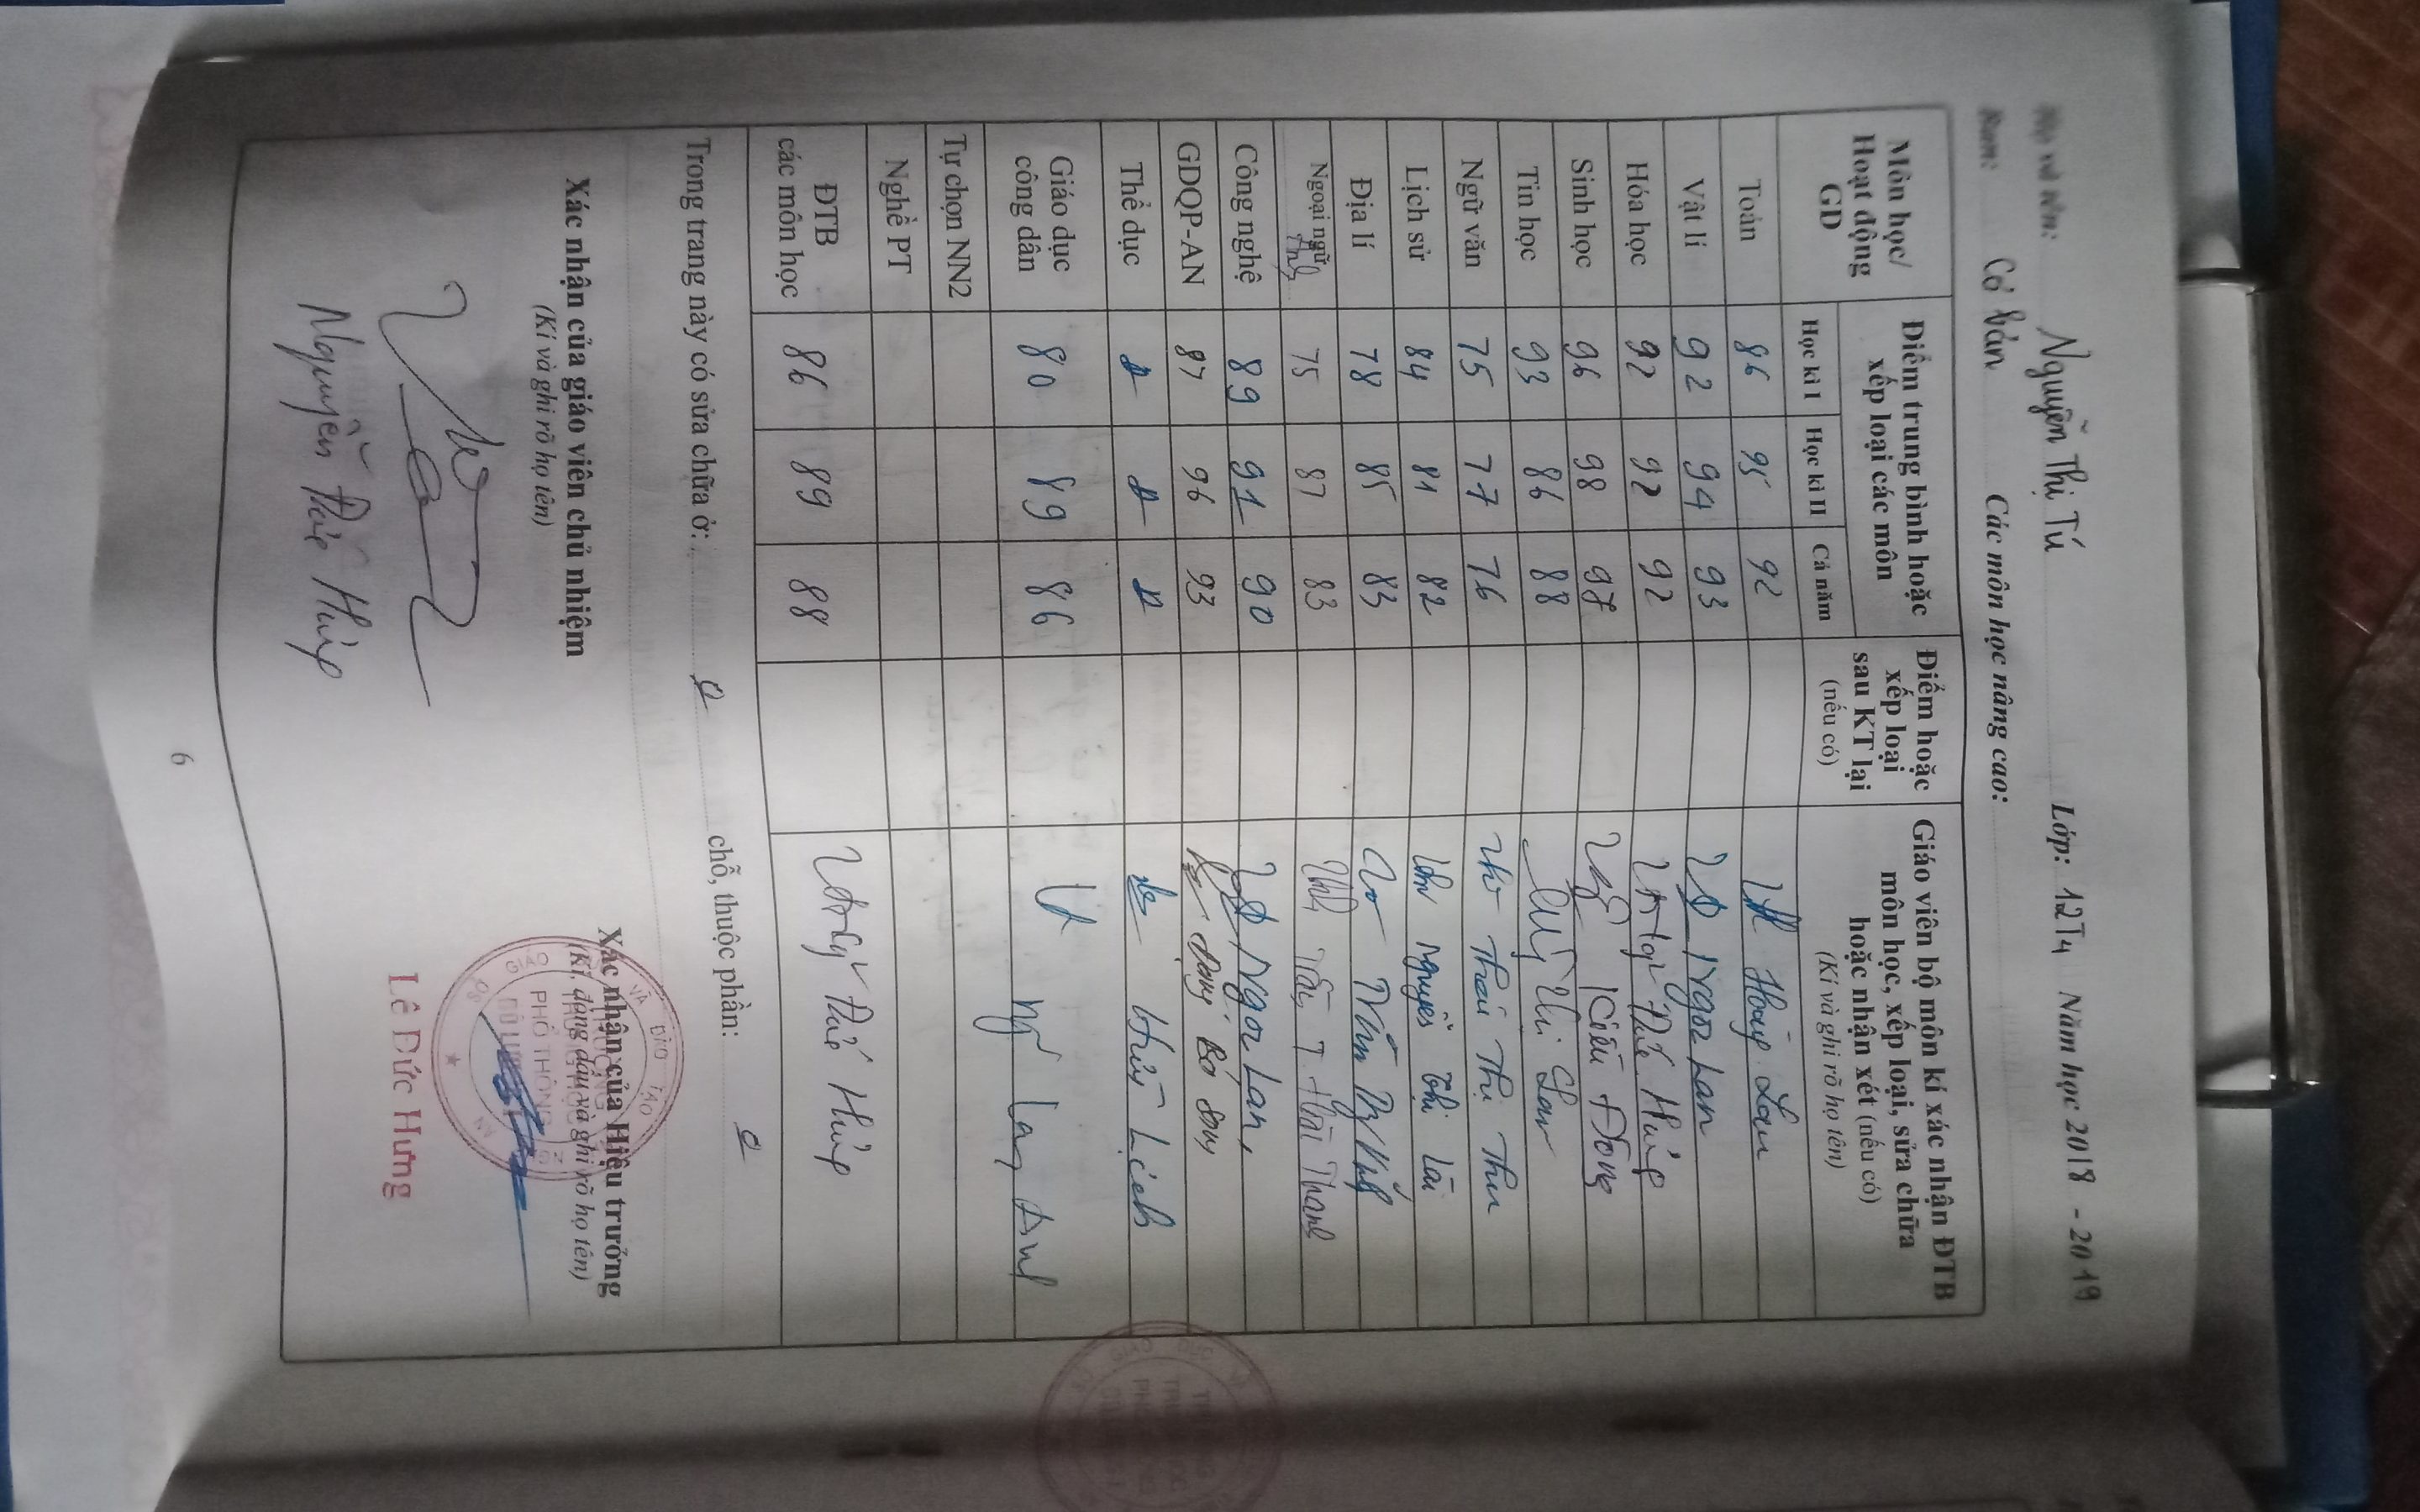 Họ và tên: Nguyễn Thị Tú Lớp: 12T4 Năm học 2018 - 2019
Ban: Cơ bản Các môn học nâng cao:
Môn học/ Hoạt động GD | Điểm trung bình hoặc xếp loại các môn | Điểm hoặc xếp loại sau KT lại (nếu có) | Giáo viên bộ môn kí xác nhận ĐTB môn học, xếp loại, sửa chữa hoặc nhận xét (nếu có) (Kí và ghi rõ họ tên)
Học kì I | Học kì II | Cả năm
Toán 86 95 92 Hoàng Lan
Vật lí 92 94 93 Ngọc Lan
Hóa học 92 92 92 Đức Hùng
Sinh học 96 98 97 Kiều Đông
Tin học 93 86 88 Lan
Ngữ văn 75 77 76 Thái Thị Thu
Lịch sử 84 81 82 Nguyễn Thị Lài
Địa lí 78 85 83
Ngoại ngữ Anh 75 87 83 Trần T. Hoài Thanh
Công nghệ 89 91 90 Ngọc Lan
GDQP-AN 87 96 93
Thể dục Đ Đ Đ
Giáo dục công dân 80 89 86
Tự chọn NN2
Nghề PT
ĐTB các môn học 86 89 88 Đức Hùng
Trong trang này có sửa chữa ở: 0 chỗ, thuộc phần: 0
Xác nhận của giáo viên chủ nhiệm
(Kí và ghi rõ họ tên)
Nguyễn Đức Hùng
Xác nhận của Hiệu trưởng
(Kí, đóng dấu và ghi rõ họ tên)
Lê Đức Hưng
6